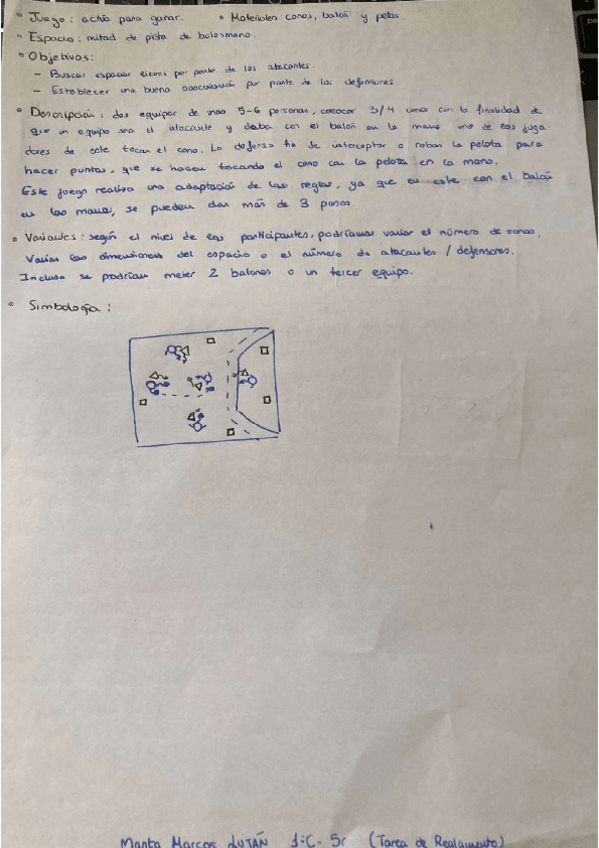 ° Juego: actúa para ganar. ° Materiales: conos, balón y petos
° Espacio: mitad de pista de balonmano.
° Objetivos:
– Buscar espacios libres por parte de los atacantes.
– Establecer una buena por parte de los defensores
° Descripción: dos equipos de unas 5-6 personas, colocar 3/4 conos con la finalidad de
que un equipo sea el atacante y deba con el balón en la mano uno de los juga
dores de este tocar el cono. La defensa ha de interceptar o roban la pelota para
hacer puntos, que se hacen tocando el cono con la pelota en la mano.
Este juego realiza una adaptación de las reglas, ya que en este con el balón
en las mano, se pueden dar más de 3 pasos.
° Variantes: según el nivel de los participantes, podríamos variar el número de conos.
Varias las dimensiones del espacio o el número de atacantes / defensores.
Incluso se podrían meter 2 balones o un tercer equipo.
° Simbología:
Marta Marcos LUJÁN 1·C- 5r (Tarea de Reglamento)